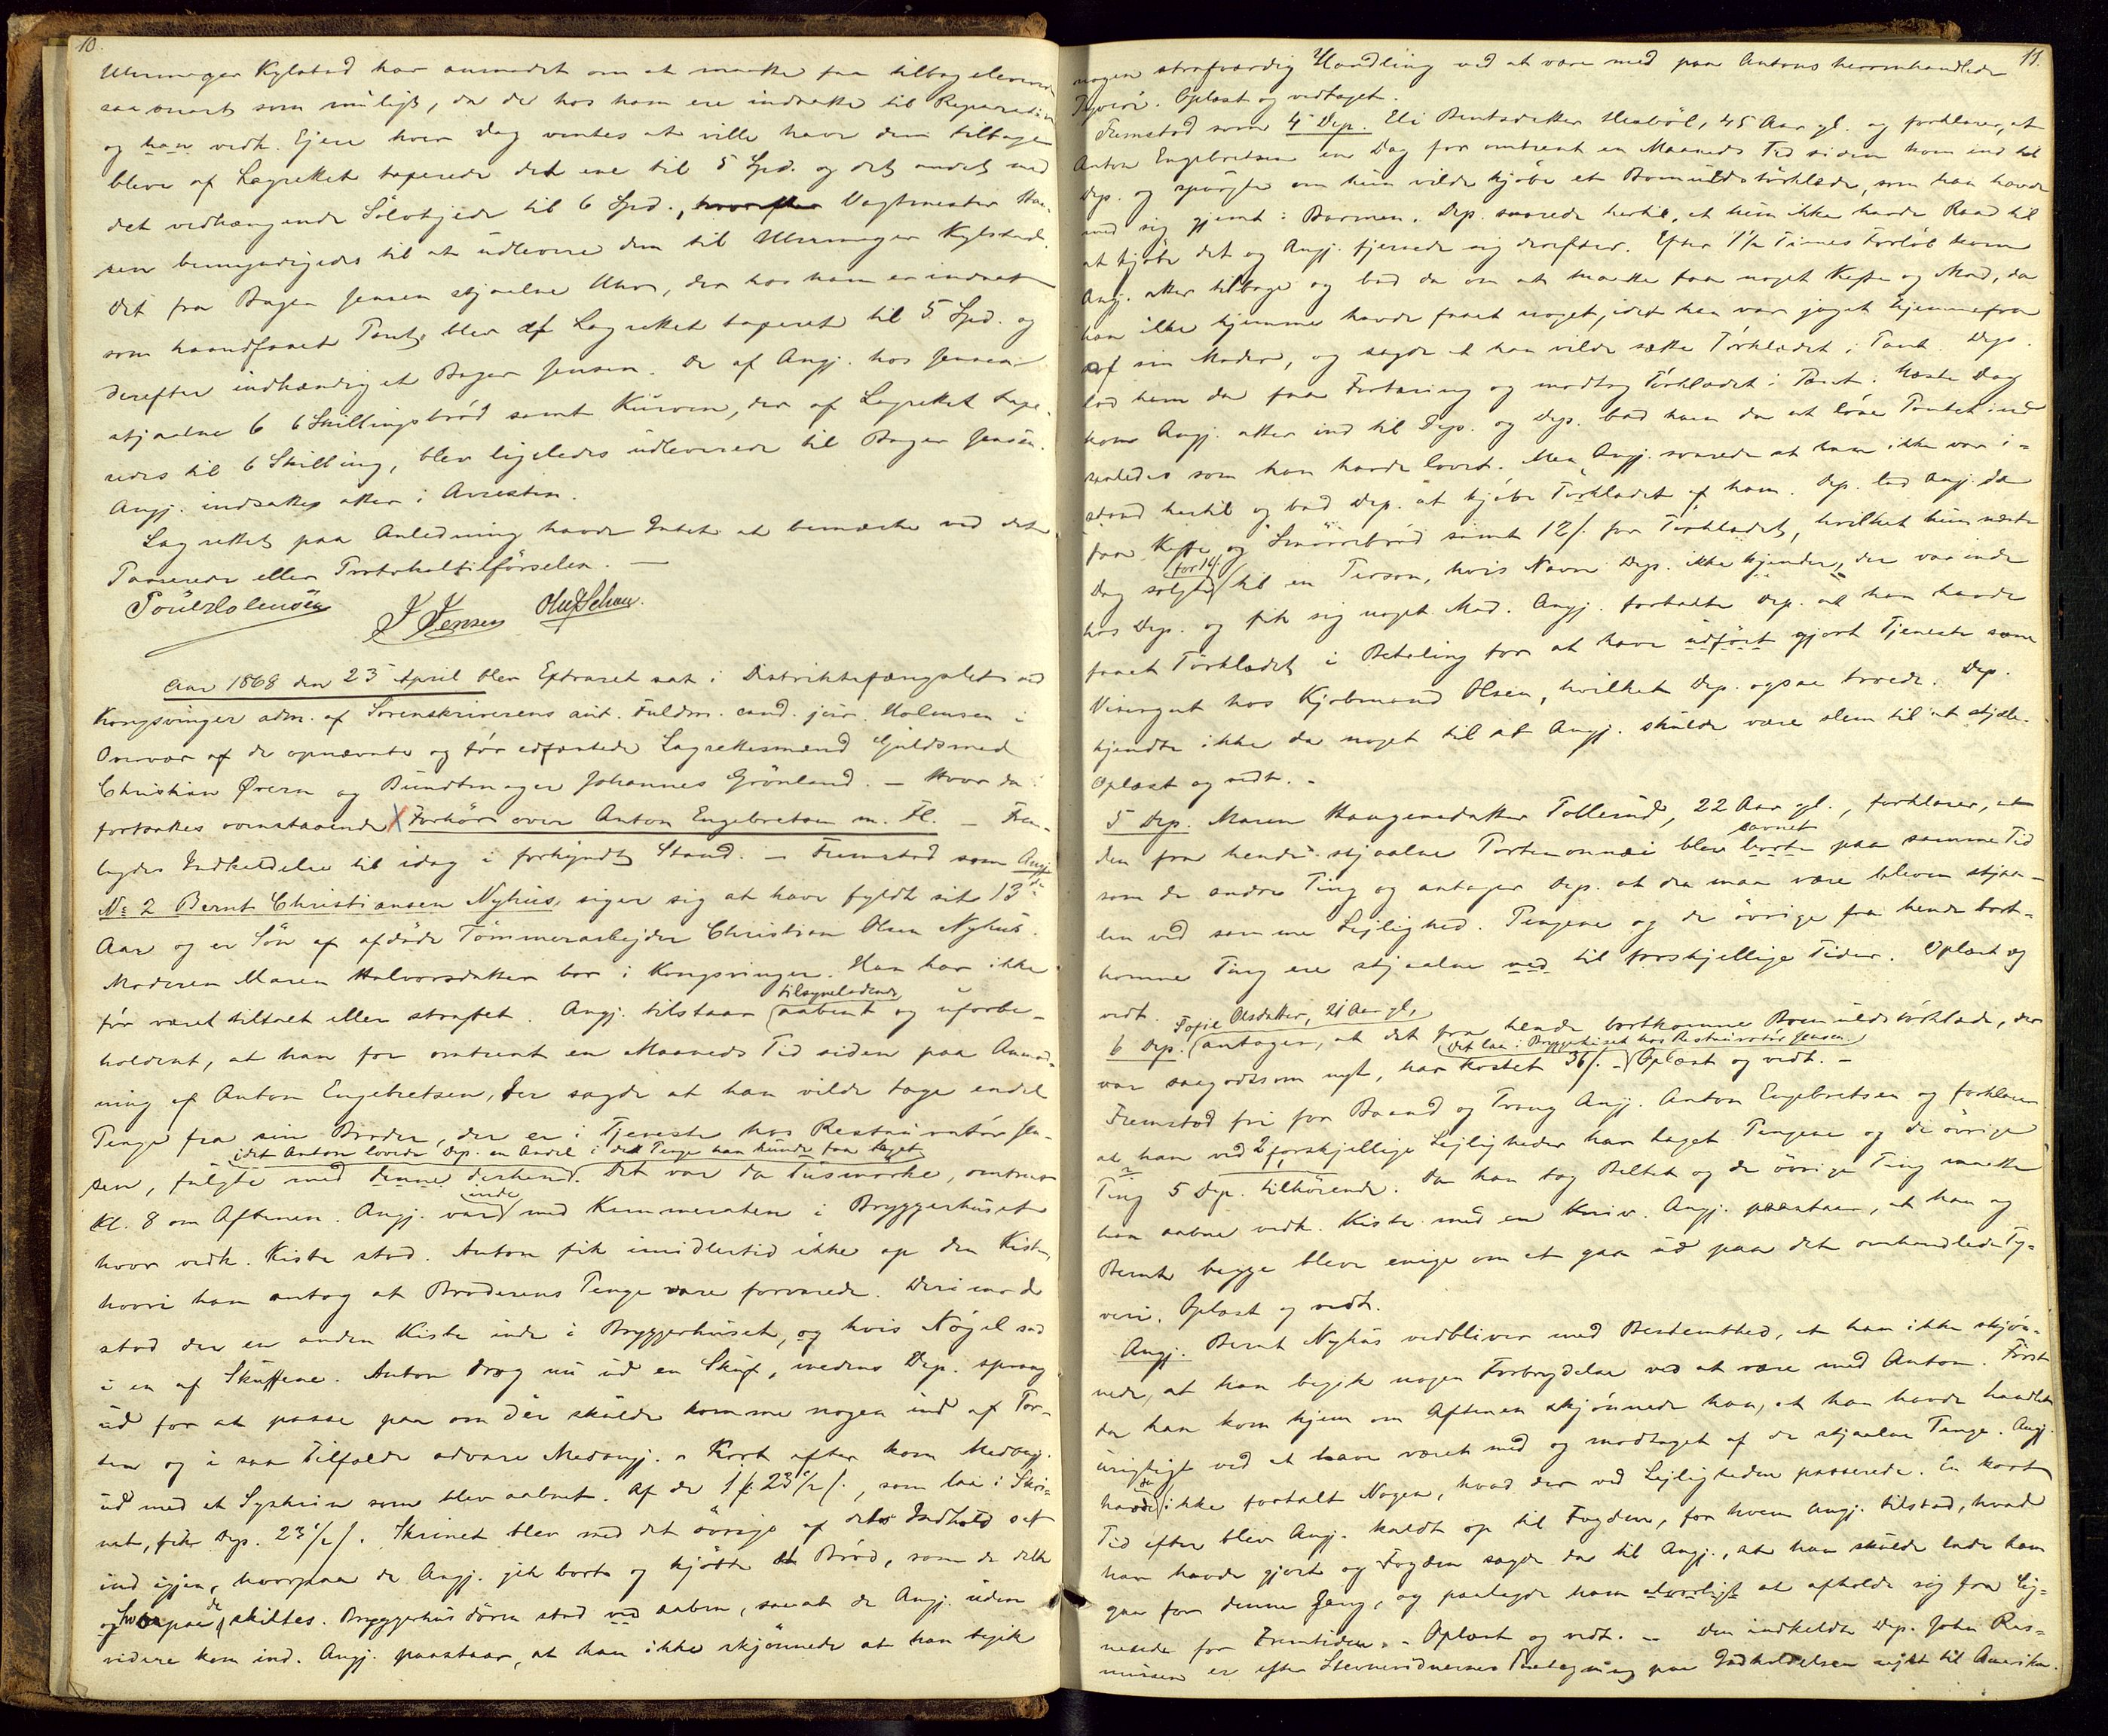 10.
Uhrmager Kylstad har anmodet om at maatte faa tilbageleveret
saa snart som muligt, da de hos ham ere indsatte til Reparation
og han vedk. Ejere hver Dag ventes at ville have dem tilbage
bleve af Lagrettet taxerede det ene til 5 Spd. og det andet med
det vedhængende Sölvkjede til 6 Spd., hvorefter Vagtmester Han-
sen bemyndigedes til at udlevere dem til Uhrmager Kylstad.
Det fra Bager Jensen stjaalne Uhr, der hos ham er indsat
som haandfaaet Pant, blev af Lagrettet taxeret til 5 Spd. og
derefter indhændiget Bager Jensen. De af Angj. hos Jensen
stjaalne 6 6 Skillingsbröd samt Kurven, der af Lagrettet taxe-
redes til 6 Skilling, blev ligeledes udleverede til Bager Jensen.
Angj. indsattes atter i Arresten.
Lagrettet paa Anledning havde Intet at bemærke ved det
Passerede eller Protokoltilförselen. —
Poul Holmsen J Jensen Oluf Schou.
Aar 1868 den 23 April blev Extraret sat i Distriktsfængslet ved
Kongsvinger adm. af Sorenskriverens aut. Fuldm. cand. jur. Holmsen i
Overvær af de opnævnte og för edfæstede Lagrettesmænd Guldsmed
Christian Övern og Bundtmager Johannes Grönland. — Hvor da
fortsattes ovenstaaende Forhör over Anton Engebretsen m. Fl. — Frem-
lagdes Indkaldelse til idag i forkyndt Stand. — Fremstod som Angj
No 2 Bernt Christiansen Nyhus, siger sig at have fyldt sit 13de
Aar og er Sön af afdöde Tömmerarbejder Christian Olsen Nyhus.
Moderen Maren Halvorsdatter bor i Kongsvinger. Han har ikke
för været tiltalt eller straffet. Angj. tilstaar tilsyneladende aabent og uforbe-
holdent, at han for omtrent en Maaneds Tid siden paa Anmod-
ning af Anton Engebretsen, der sagde at han vilde tage endel
Penge fra sin Broder, der er i Tjeneste hos Restauratör Jen-
idet Anton lovede Dep. en Andel i de Penge han kunde faa taget
sen, fulgte med denne derhend. Det var da tusmörke, omtrent
Kl. 8 om Aftenen. Angj. var inde med Kammeraten i Bryggerhuset
hvor vedk. Kiste stod. Anton fik imidlertid ikke op den Kiste,
hvori han antog at Broderens Penge vare forvarede. Derimod
stod der en anden Kiste inde i Bryggerhuset, og hvis Nögel sad
i en af Skufferne. Anton drog nu ud en Skuf, medens Dep. sprang
ud for at passe paa om der skulde komme nogen ind af Por-
ten og i saa Tilfælde advare Medangj. — Kort efter kom Medangj.
ud med et Syskrin som blev aabnet. Af de 1 ƒ 23 1/2 ſ., som laa i Skri-
net, fik Dep. 23 1/2 ſ. Skrinet blev med det övrige af dets Indhold sat
ind igjen, hvorpaa de Angj. gik bort og kjöbte et Bröd, som de delte
og hvorpaa de skiltes. Bryggerhusdören stod ved aaben, saaat de Angj. uden
videre kom ind. Angj. paastaar, at han ikke skjönnede at han begik
11.
nogen strafværdig Handling ved at være med paa Antons heromhandlede
Tyveri. Oplæst og vedtaget.
Fremstod som 4 Dep. Eli Berntsdatter Hesböl, 45 Aar gl. og forklarer, at
Anton Engebretsen en Dag for omtrent en Maaneds Tid siden kom ind til
Dep. og spurgte om hun vilde kjöbe et Bomuldstörklæde, som han havde
med sig gjemt i Barmen. Dep. svarede hertil, at hun ikke havde Raad til
at kjöbe det og Angj. fjernede sig derefter. Efter 1 1/2 Times Forlöb kom
Angj. atter tilbage og bad da om at maatte faa noget Kaffe og Mad, da
han ikke hjemme havde faaet noget, idet han var jaget hjemmefra
af sin Moder, og sagde at han vilde sætte Törklædet i Pant. Dep.
lod ham da faa Fortæring og modtog Törklædet i Pant. Næste Dag
kom Angj. atter ind til Dep. og Dep. bad ham da at löse Pantet ind
saaledes som han havde lovet. Men Angj. svarede at han ikke var i-
stand hertil og bad Dep. at kjöbe Törklædet af ham. Dep. lod Angj. da
faa Kaffe og Smörrebröd samt 12 ſ. for Törklædet, hvilket hun næste
Dag solgte for 14 ſ til en Person, hvis Navn Dep. ikke kjender, der var inde
hos Dep. og fik sig noget Mad. Angj. fortalte Dep. at han havde
faaet Törklædet i Betaling for at have udfört gjort Tjeneste som
Visergut hos Kjöbmand Olsen, hvilket Dep. ogsaa troede. Dep.
kjendte ikke da noget til at Angj. skulde være slem til at stjæle.
Oplæst og vedt. —
5 Dep. Maren Haagensdatter Tollerud, 22 Aar gl., forklarer, at
den fra hende stjaalne Portemonnæi blev borte savnet paa samme Tid
som de andre Ting og antager Dep. at den maa være bleven stjaa-
len ved samme Lejlighed. Pengene og de övrige fra hende bort-
komne Ting ere stjaalne ved til forskjellige Tider. Oplæst og
vedt.
6 Dep. Tofie Olsdatter, 21 Aar gl, antager, at det fra hende bortkomne Bomuldstörklæde, der
var saagodtsom nyt, har kostet 36 ſ. — Det laa i Bryggerhuset hos Restauratör Jensen. Oplæst og vedt. —
Fremstod fri for Baand og Tvang Angj. Anton Engebretsen og forklarer
at han ved 2 forskjellige Lejligheder har taget Pengene og de övrige
Ting 5 Dep. tilhörende. Da han tog Beltet og de övrige Ting maatte
han aabne vedk. Kiste med en Kniv. Angj. paastaar, at han og
Bernt begge bleve enige om at gaa ud paa det omhandlede Ty-
veri. Oplæst og vedt.
Angj. Bernt Nyhus vedbliver med Bestemthed, at han ikke skjön-
nede, at han begik nogen Forbrydelse ved at være med Anton. Först
da han kom hjem om Aftenen skjönnede han, at han havde handlet
urigtigt ved at have været med og modtaget af de stjaalne Penge. Angj.
havde da ikke fortalt Nogen, hvad der ved Lejligheden passerede. En kort
Tid efter blev Angj. kaldt op til Fogden, for hvem Angj. tilstod, hvad
han havde gjort og Fogden sagde da til Angj., at han skulde lade ham
gaa for denne Gang, og paalagde ham alvorligt at afholde sig fra Lig-
nende for Fremtiden. — Oplæst og vedt. — Den indkaldte Dep. John Ras-
mussen er efter Stevnevidnernes Paategning paa Indkaldelsen rejst til Amerika.